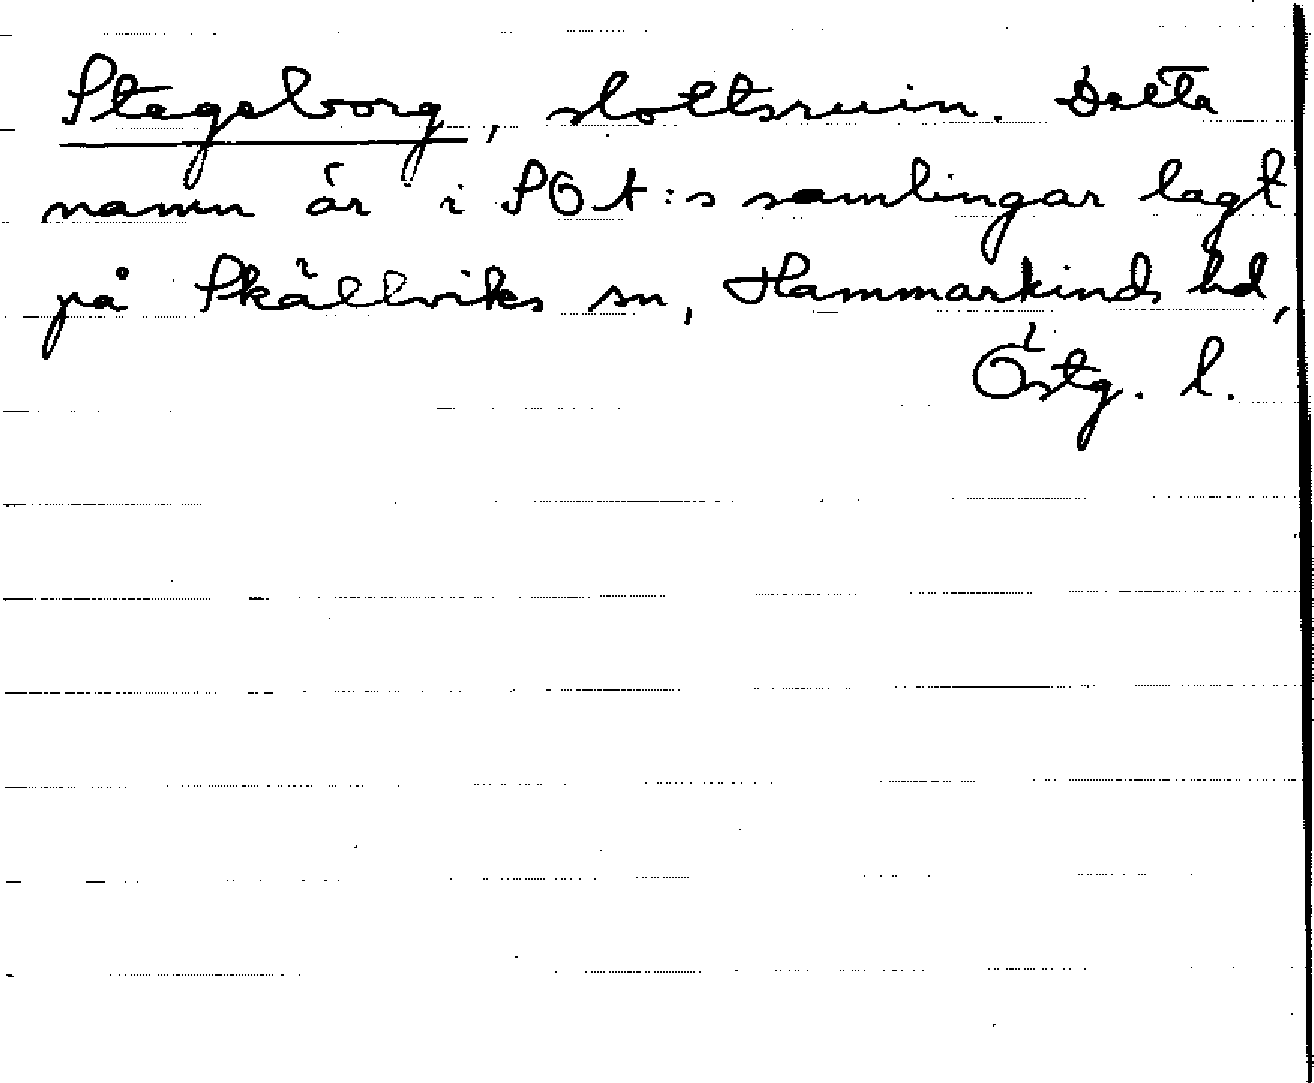 Stegeborg, slottsruin. Detta
namn är i SOA:s samlingar lagt
på Skällviks sn, Hammarkinds hd,
Östg. l.